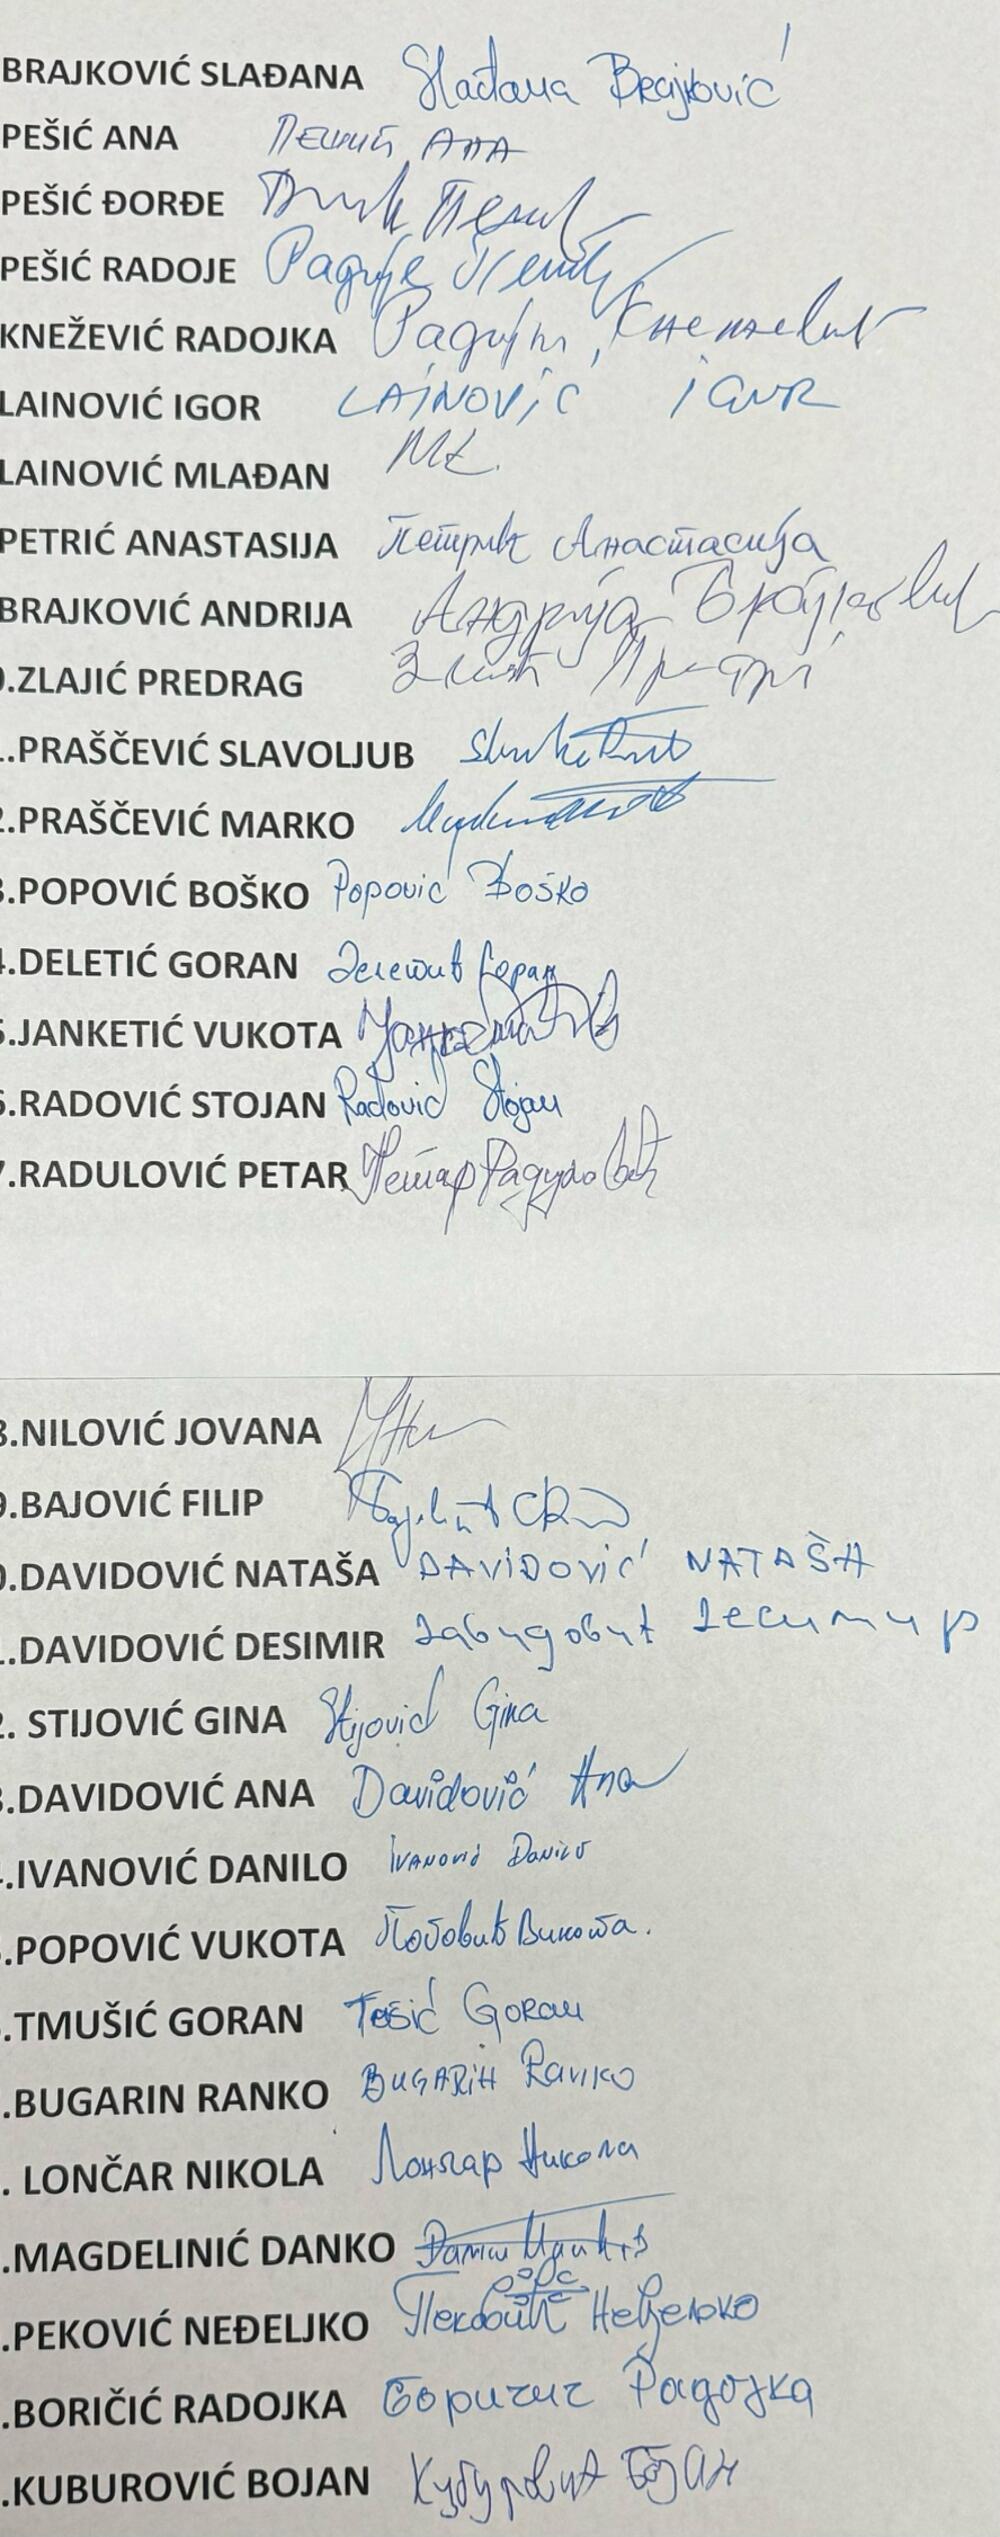 BRAJKOVIĆ SLAĐANA Slađana Brajković
PEŠIĆ ANA Пешић Ана
PEŠIĆ ĐORĐE
PEŠIĆ RADOJE Радоје Пешић
KNEŽEVIĆ RADOJKA Радојка Кнежевић
LAINOVIĆ IGOR LAINOVIĆ IGOR
LAINOVIĆ MLAĐAN
PETRIĆ ANASTASIJA Петрић Анастасија
BRAJKOVIĆ ANDRIJA Андрија Брајковић
.ZLAJIĆ PREDRAG
.PRAŠČEVIĆ SLAVOLJUB
2.PRAŠČEVIĆ MARKO
3.POPOVIĆ BOŠKO Popović Boško
4.DELETIĆ GORAN Делетић Горан
5.JANKETIĆ VUKOTA
6.RADOVIĆ STOJAN Radović Stojan
7.RADULOVIĆ PETAR Петар Радуловић
8.NILOVIĆ JOVANA
9.BAJOVIĆ FILIP
0.DAVIDOVIĆ NATAŠA DAVIDOVIĆ NATAŠA
.DAVIDOVIĆ DESIMIR Давидовић Десимир
2. STIJOVIĆ GINA Stijović Gina
3.DAVIDOVIĆ ANA Davidović Ana
.IVANOVIĆ DANILO Ivanović Danilo
.POPOVIĆ VUKOTA Поповић Вукота.
.TMUŠIĆ GORAN Goran
.BUGARIN RANKO BUGARIN Ranko
. LONČAR NIKOLA Лончар Никола
.MAGDELINIĆ DANKO
.PEKOVIĆ NEĐELJKO Пековић Неђељко
.BORIČIĆ RADOJKA Боричић Радојка
.KUBUROVIĆ BOJAN Кубуровић Бојан